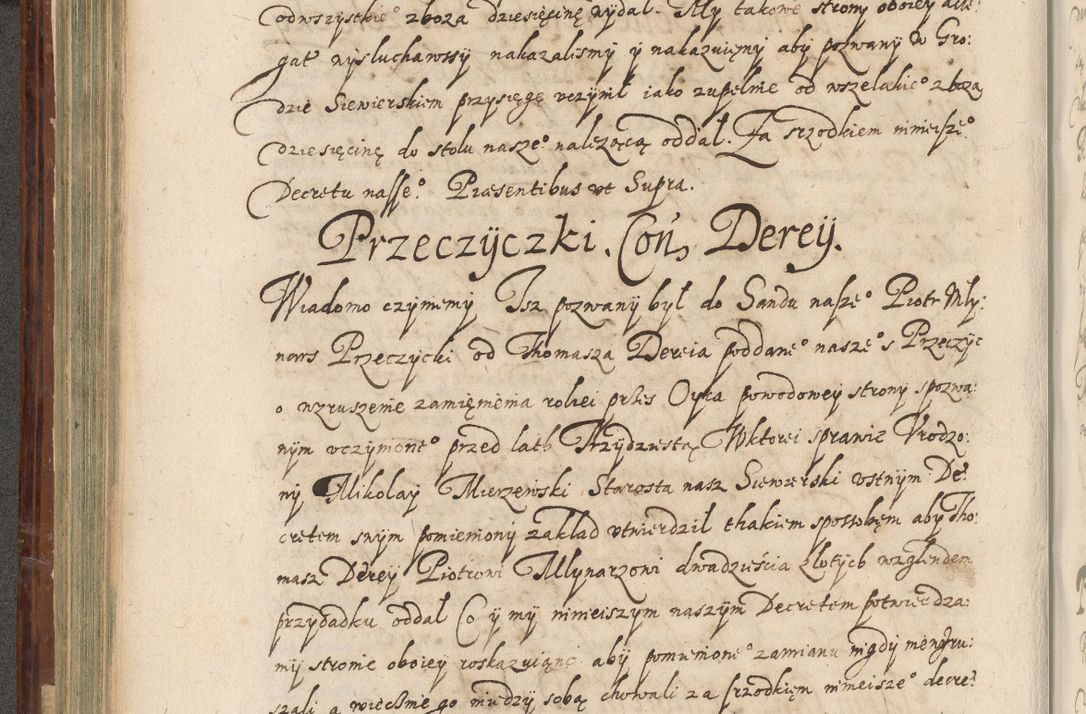 odwszystkie° zboza dziesięcinę wydal. My takowe strony oboiey alle:
gat wysluchawssy nakazalismy y nakazuięmy aby pozwany w Gro:
dzie Siewierskiem przysięgę vczynil iako zupelnie od wszelakie° zboza
dziesięcinę do stolu nasze° nalezącą oddal. Za srzodkiem ninieisze°
Decretu nasse°. Præsentibus vt Supra.
Przeczyczki. Con, Derey.
Wiadomo czyniemy Isz pozwany był do Sandu nasze° Piotr Mły:
narz Przeczycki od Thomasza Dereia poddane° nasze° s Przeczyc
o wzruszenie zamięnienia roliei przes Oyca powodowey strony spozwa:
nym vczynione° przed lath Trzydziestą Wktorei sprawie Vrodzo:
ny Mikolay Mierzewski Starosta nasz Siewierski vstnym De:
cretem swym pomieniony zaklad vtwierdzil thakiem sposobęm aby Tho:
masz Derey Piotrowi Mlynarzowi dwadzieścia zlotych wzglendem
przydadku oddal Co y my nineiszym naszym Decretem potwierdza:
my stronie oboiey roskazuiąnc aby pomienione° zamianu nigdy niewzru:
szali a wiecznie go miedzy sobą chowali za srzodkięm nineisze° decre°